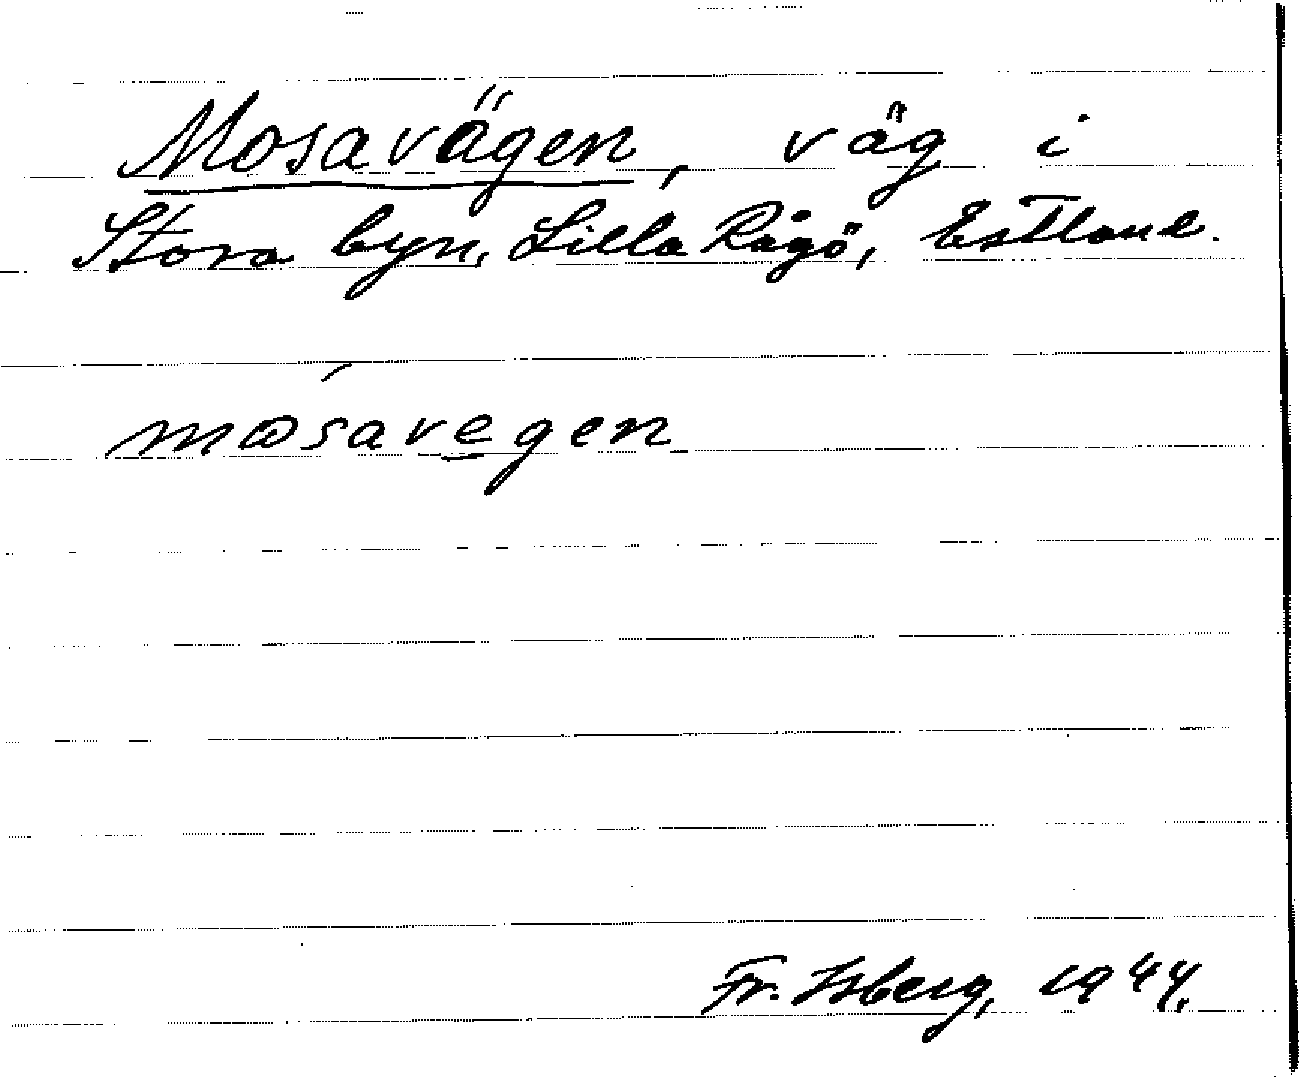 Mosavägen, väg i
Stora byn, Lilla Rågö, Estland.
mɷsavegen
Fr. Isberg, 1944.